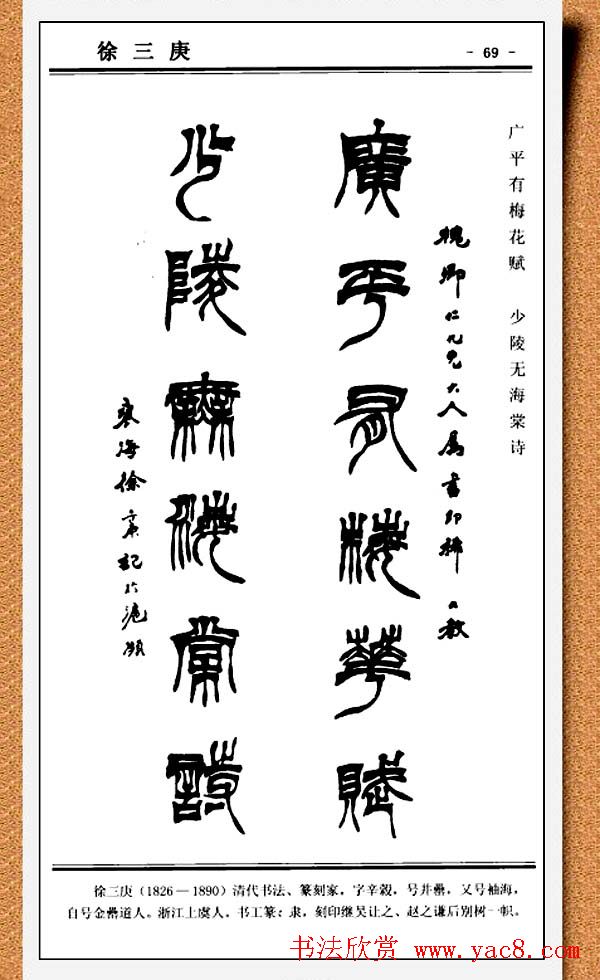 徐三庚
- 69 -
广平有梅花赋 少陵无海棠诗
槐卿仁九兄大人属書即希 教
廣平有梅華賦
少陵無海棠詩
褎海徐三庚記於滬瀕
徐三庚（1826—1890）清代书法、篆刻家，字辛榖，号井罍，又号袖海，
自号金罍道人。浙江上虞人。书工篆：隶，刻印继吴让之、赵之谦后别树一帜。
书法欣赏 www.yac8.com